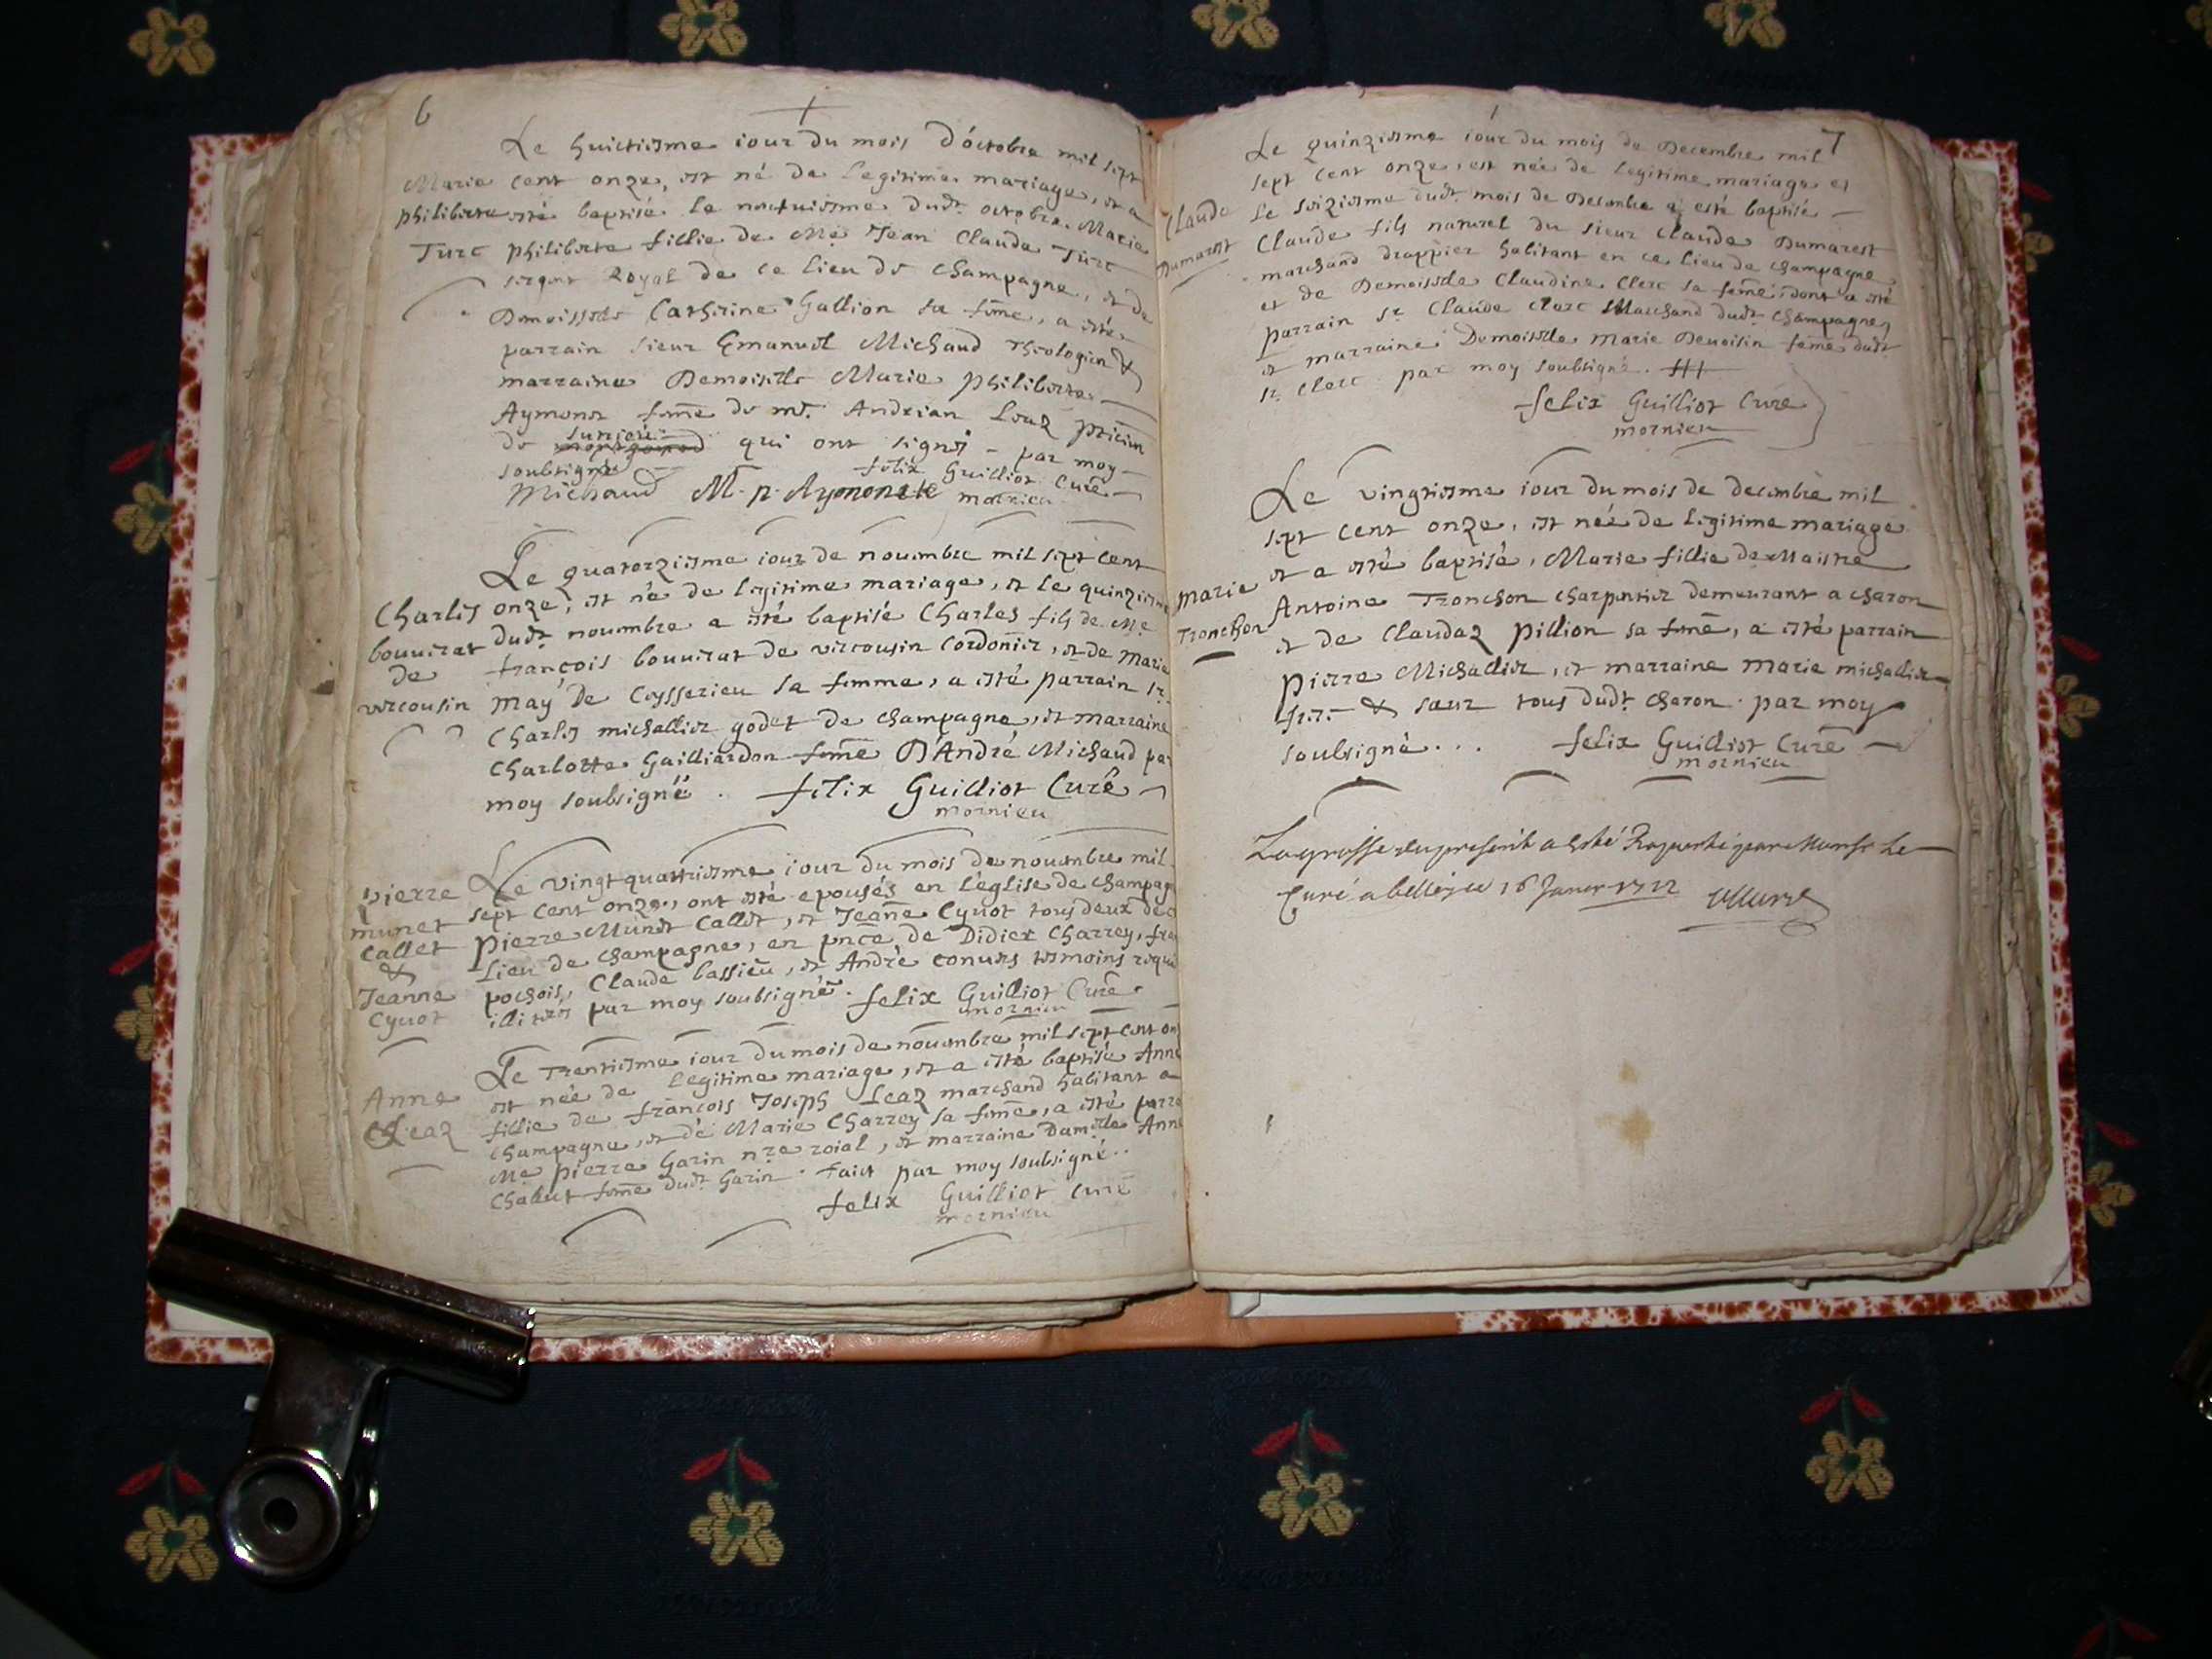 6
Le huictiesme iour du mois d'octobre mil sept
Marie cent onze, est né de legitime mariage, et a
philiberte esté baptisée le neufuiesme dudt octobre. Marie
Turc philiberte fillie de Me Jean Claude Turc
sergent Royal de ce lieu de champagne, et de
Demoisselle Catherine Gallion sa feme, a esté
parrain sieur Emanuel Michaud Theologien &
marraine Demoiselle Marie philiberte
Aymonet feme de mr. Andrian Louz
de surjeu qui ont signes par moy
soubsigné felix Guilliot Curé
Michaud M. p. Aymonete mornieu
Le quatorziesme iour de nouembre mil sept cent
Charles onze, est né de legitime mariage, et le quinziesme
bouuirat dudt nouembre a esté baptisé Charles fils de Me
de françois bouuirat de vircousin cordonier, et de Marie
vircousin may De Ceysserieu sa femme, a esté parrain sr
Charles michallier godet de champagne, et marraine
Charlotte Gailliardon feme D'André Michaud par
moy soubsigné. felix Guilliot Curé
mornieu
Le vingt quattriesme iour du mois de nouembre mil
pierre sept cent onze, ont esté epousés en l'eglise de champag
munet pierre Munet Callet, et Jeanne Cyuot tous deux de c
callet Lieu de champagne, en pnce de Didier Charrey, fra
& pochois, Claude bassieu, et André conuers tesmoins requi
Jeanne illiteres par moy soubsigné. felix Guilliot Curé
Cyuot mornieu
Le Trentiesme iour du mois de nouembre mil sept cent on
Anne est née de legitime mariage, et a esté baptisée Anne
Leaz fillie de françois Joseph Leaz marchand habitant a
champagne, et de Marie Charrey sa feme, a esté parra
Me pierre Garin nre roial, et marraine Damlle Anne
Chabut feme dudt Garin. faict par moy soubsigné..
felix Guilliot curé
mornieu
7
Le quinziesme iour du mois de Decembre mil
sept cent onze, est née de legitime mariage et
Claude le seiziesme dudt mois de Decembre a esté baptisé
Dumarest Claude fils naturel du sieur Claude Dumarest
marchand drappier habitant en ce lieu de champagne
et de Demoiselle Claudine Clerc sa feme, dont a esté
parrain sr Claude clerc Marchand dudt champagne,
et marraine Demoiselle Marie Deuoisin feme dudt
sr Clerc par moy soubsigné.
felix Guilliot Curé
mornieu
Le vingtiesme iour du mois de decembre mil
sept cent onze, est née de legitime mariage
et a esté baptisé, Marie fillie de Maistre
Marie Antoine Tronchon charpentier demeurant a charon
Tronchon et de Claudaz pillion sa feme, a esté parrain
pierre Michallier, et marraine marie michallier
frere & sœur tous dudt charon. par moy
soubsigné... felix Guilliot Curé
mornieu
La grosse du present a esté Raporté par Monsr Le
Curé a belley ce 16 Januer 1712